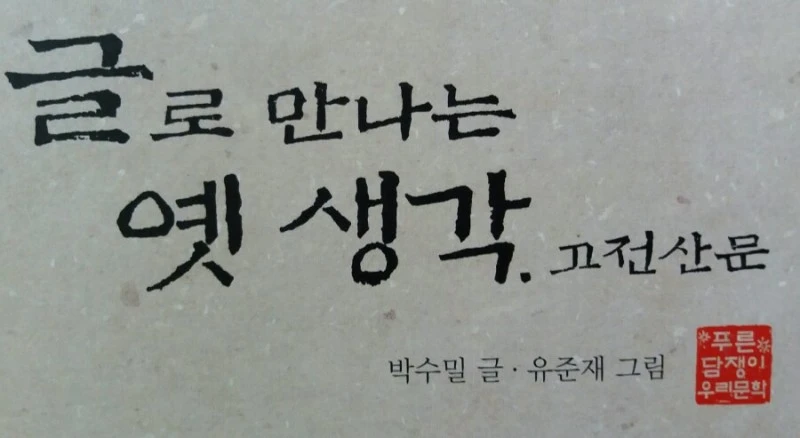 글로 만나는
옛 생각. 고전산문
박수밀 글 · 유준재 그림
푸른
담쟁이
우리문학